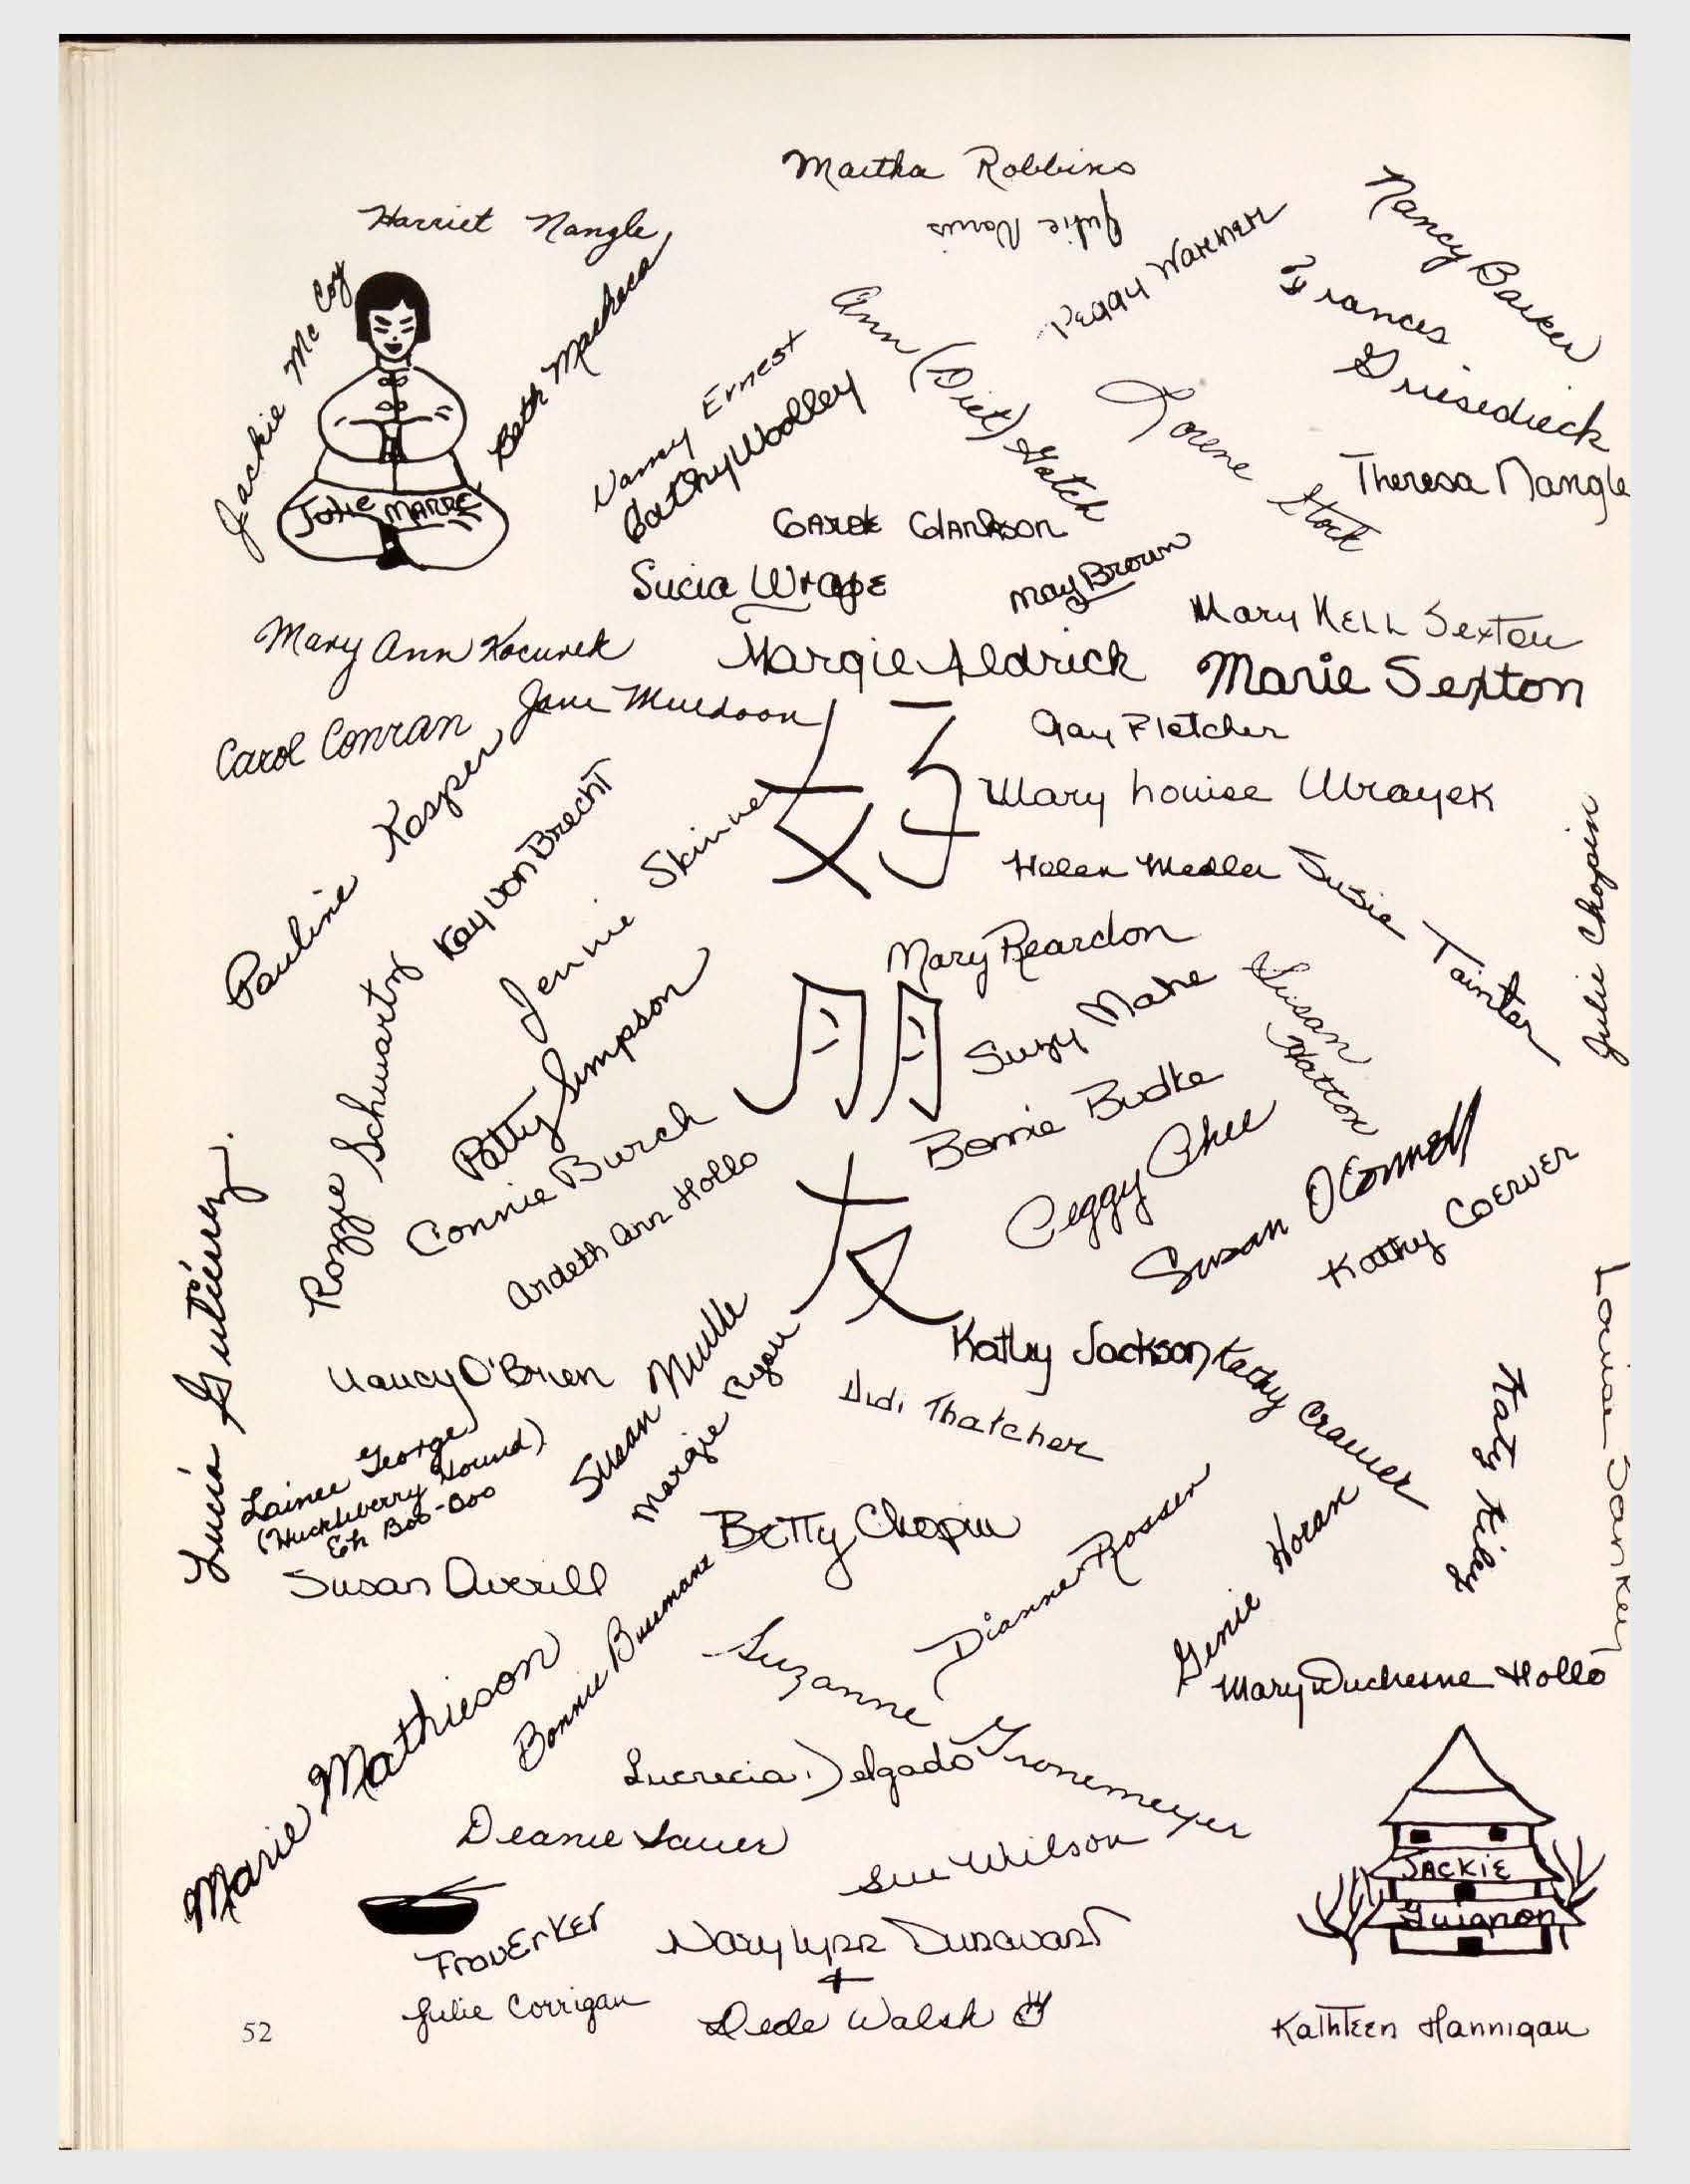 Martha Robbins
Harriet Nangle
Julie Nannis
Peggy Warener
Nancy Barker
Frances Griesedieck
Jackie McCoy
Beth Macheca
Julie MARRE
Nancy Ernest
Cathy Woolley
Ann (Diet) Hatch
Lorene Stock
Theresa Nangle
Clarkson
Sucia Wrape
May Brown
Mary Nell Sexton
Mary Ann Kocurek
Margie Aldrick
Marie Sexton
Carol Conran
Jane Muldoon
好
Gay Fletcher
Pauline Kasper
Kay von Brecht
Jennie Skinner
Mary Louise Wrayek
Helen Medler
Susie Tainter
Julie Chopin
Mary Reardon
朋
Suzy Mahe
Susan Hatton
Rozzie Schwartz
Patty Simpson
Connie Burch
Bonnie Budke
Peggy Chee
Susan O'Connell
Kathy Coerver
Ardeth Ann Hollo
友
Lucia Gutierrez.
Nancy O'Brien
Susan Mulle
Margie Ryan
Kathy Jackson
Kathy Cramer
Didi Thatcher
Katy Kiley
Louise Sankey
Lainee George
(Huckleberry Hound)
Eh Boo-Boo
Susan Averill
Betty Chopin
Dianne Rosser
Genie Horan
Mary Duchesne Hollo
Marie Mathieson
Bonnie Busmans
Suzanne Gronemeyer
Lucrecia Delgado
Deanie Lauer
Sue Wilson
JACKIE
Guignon
Frauerker
Mary Lynn Dunavant
+
Dede Walsh
Julie Corrigan
Kathleen Hannigan
52